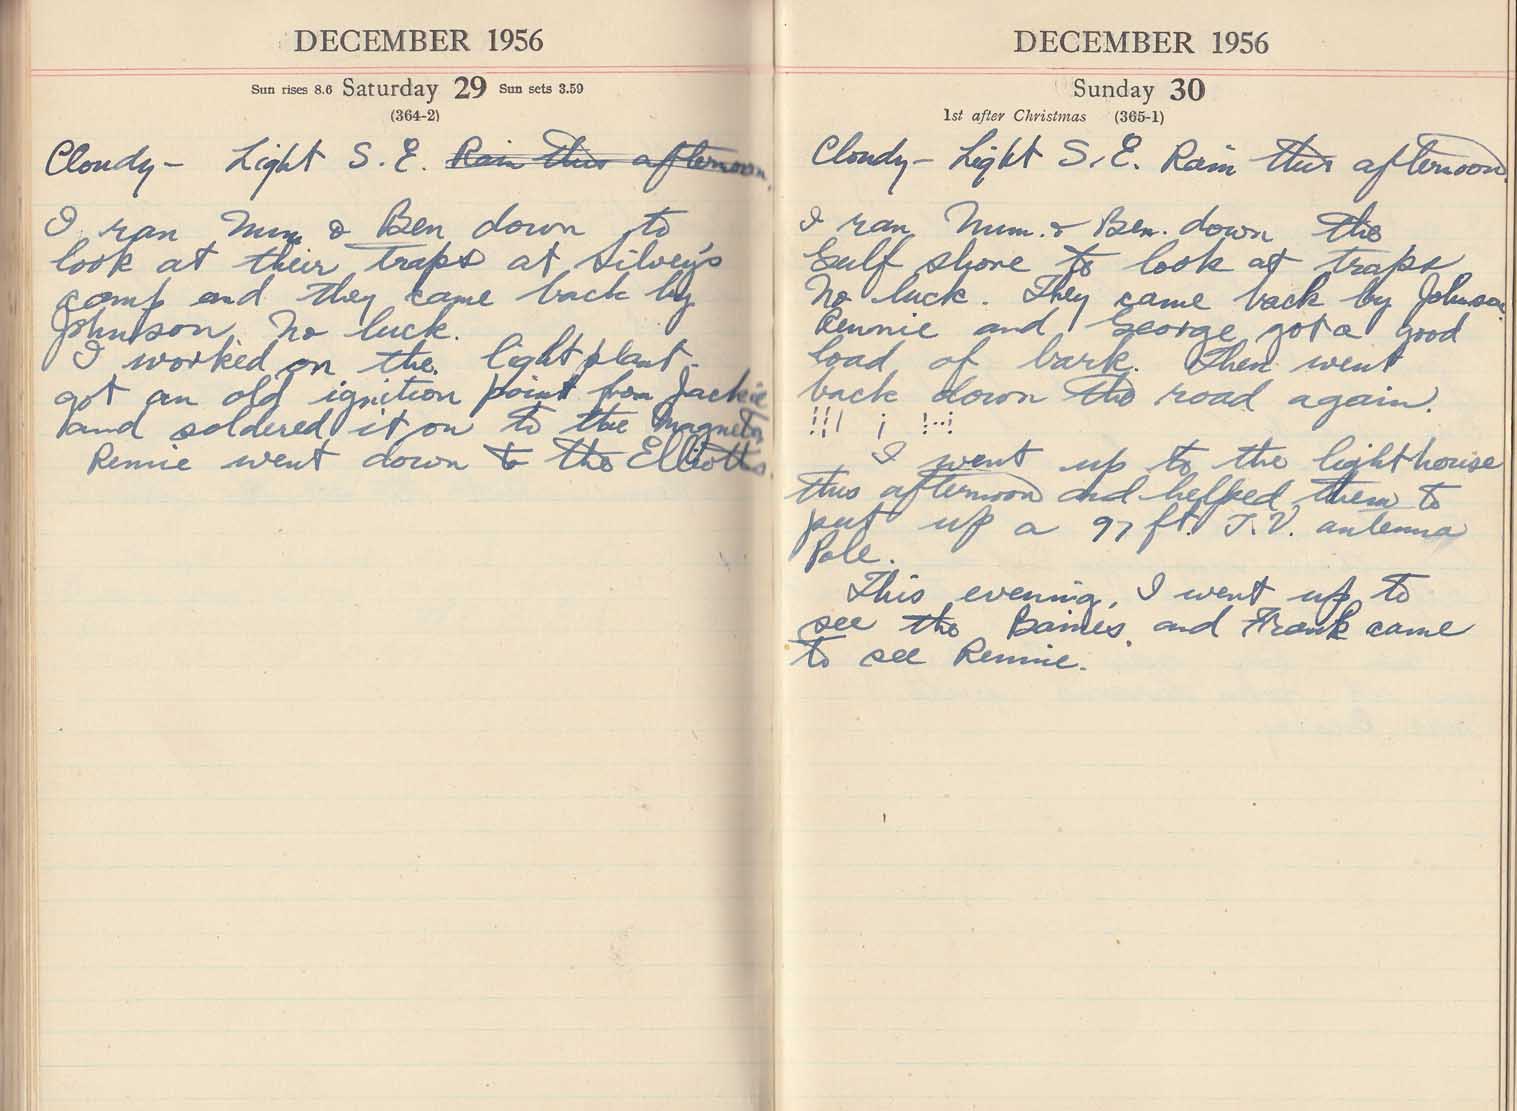 DECEMBER 1956
Sun rises 8.6 Saturday 29 Sun sets 3.59
(364-2)
Cloudy - Light S.E. Rain this afternoon.
I ran Mum & Ben down to
look at their traps at Silvey's
camp and they came back by
Johnson. No luck.
I worked on the light plant.
got an old ignition point from Jackie
and soldered it on to the Magneto,
Rennie went down to the Elliotts.
DECEMBER 1956
Sunday 30
1st after Christmas (365-1)
Cloudy - Light S.E. Rain this afternoon.
I ran Mum. & Ben. down the
Gulf shore to look at traps
No luck. They came back by Johnson.
Rennie and George got a good
load of bark. Then went
back down the road again.
!!! ¡ !--!
I went up to the lighthouse
this afternoon and helped them to
put up a 97 ft. T.V. antenna
Pole.
This evening, I went up to
see the Baines, and Frank came
to see Rennie.